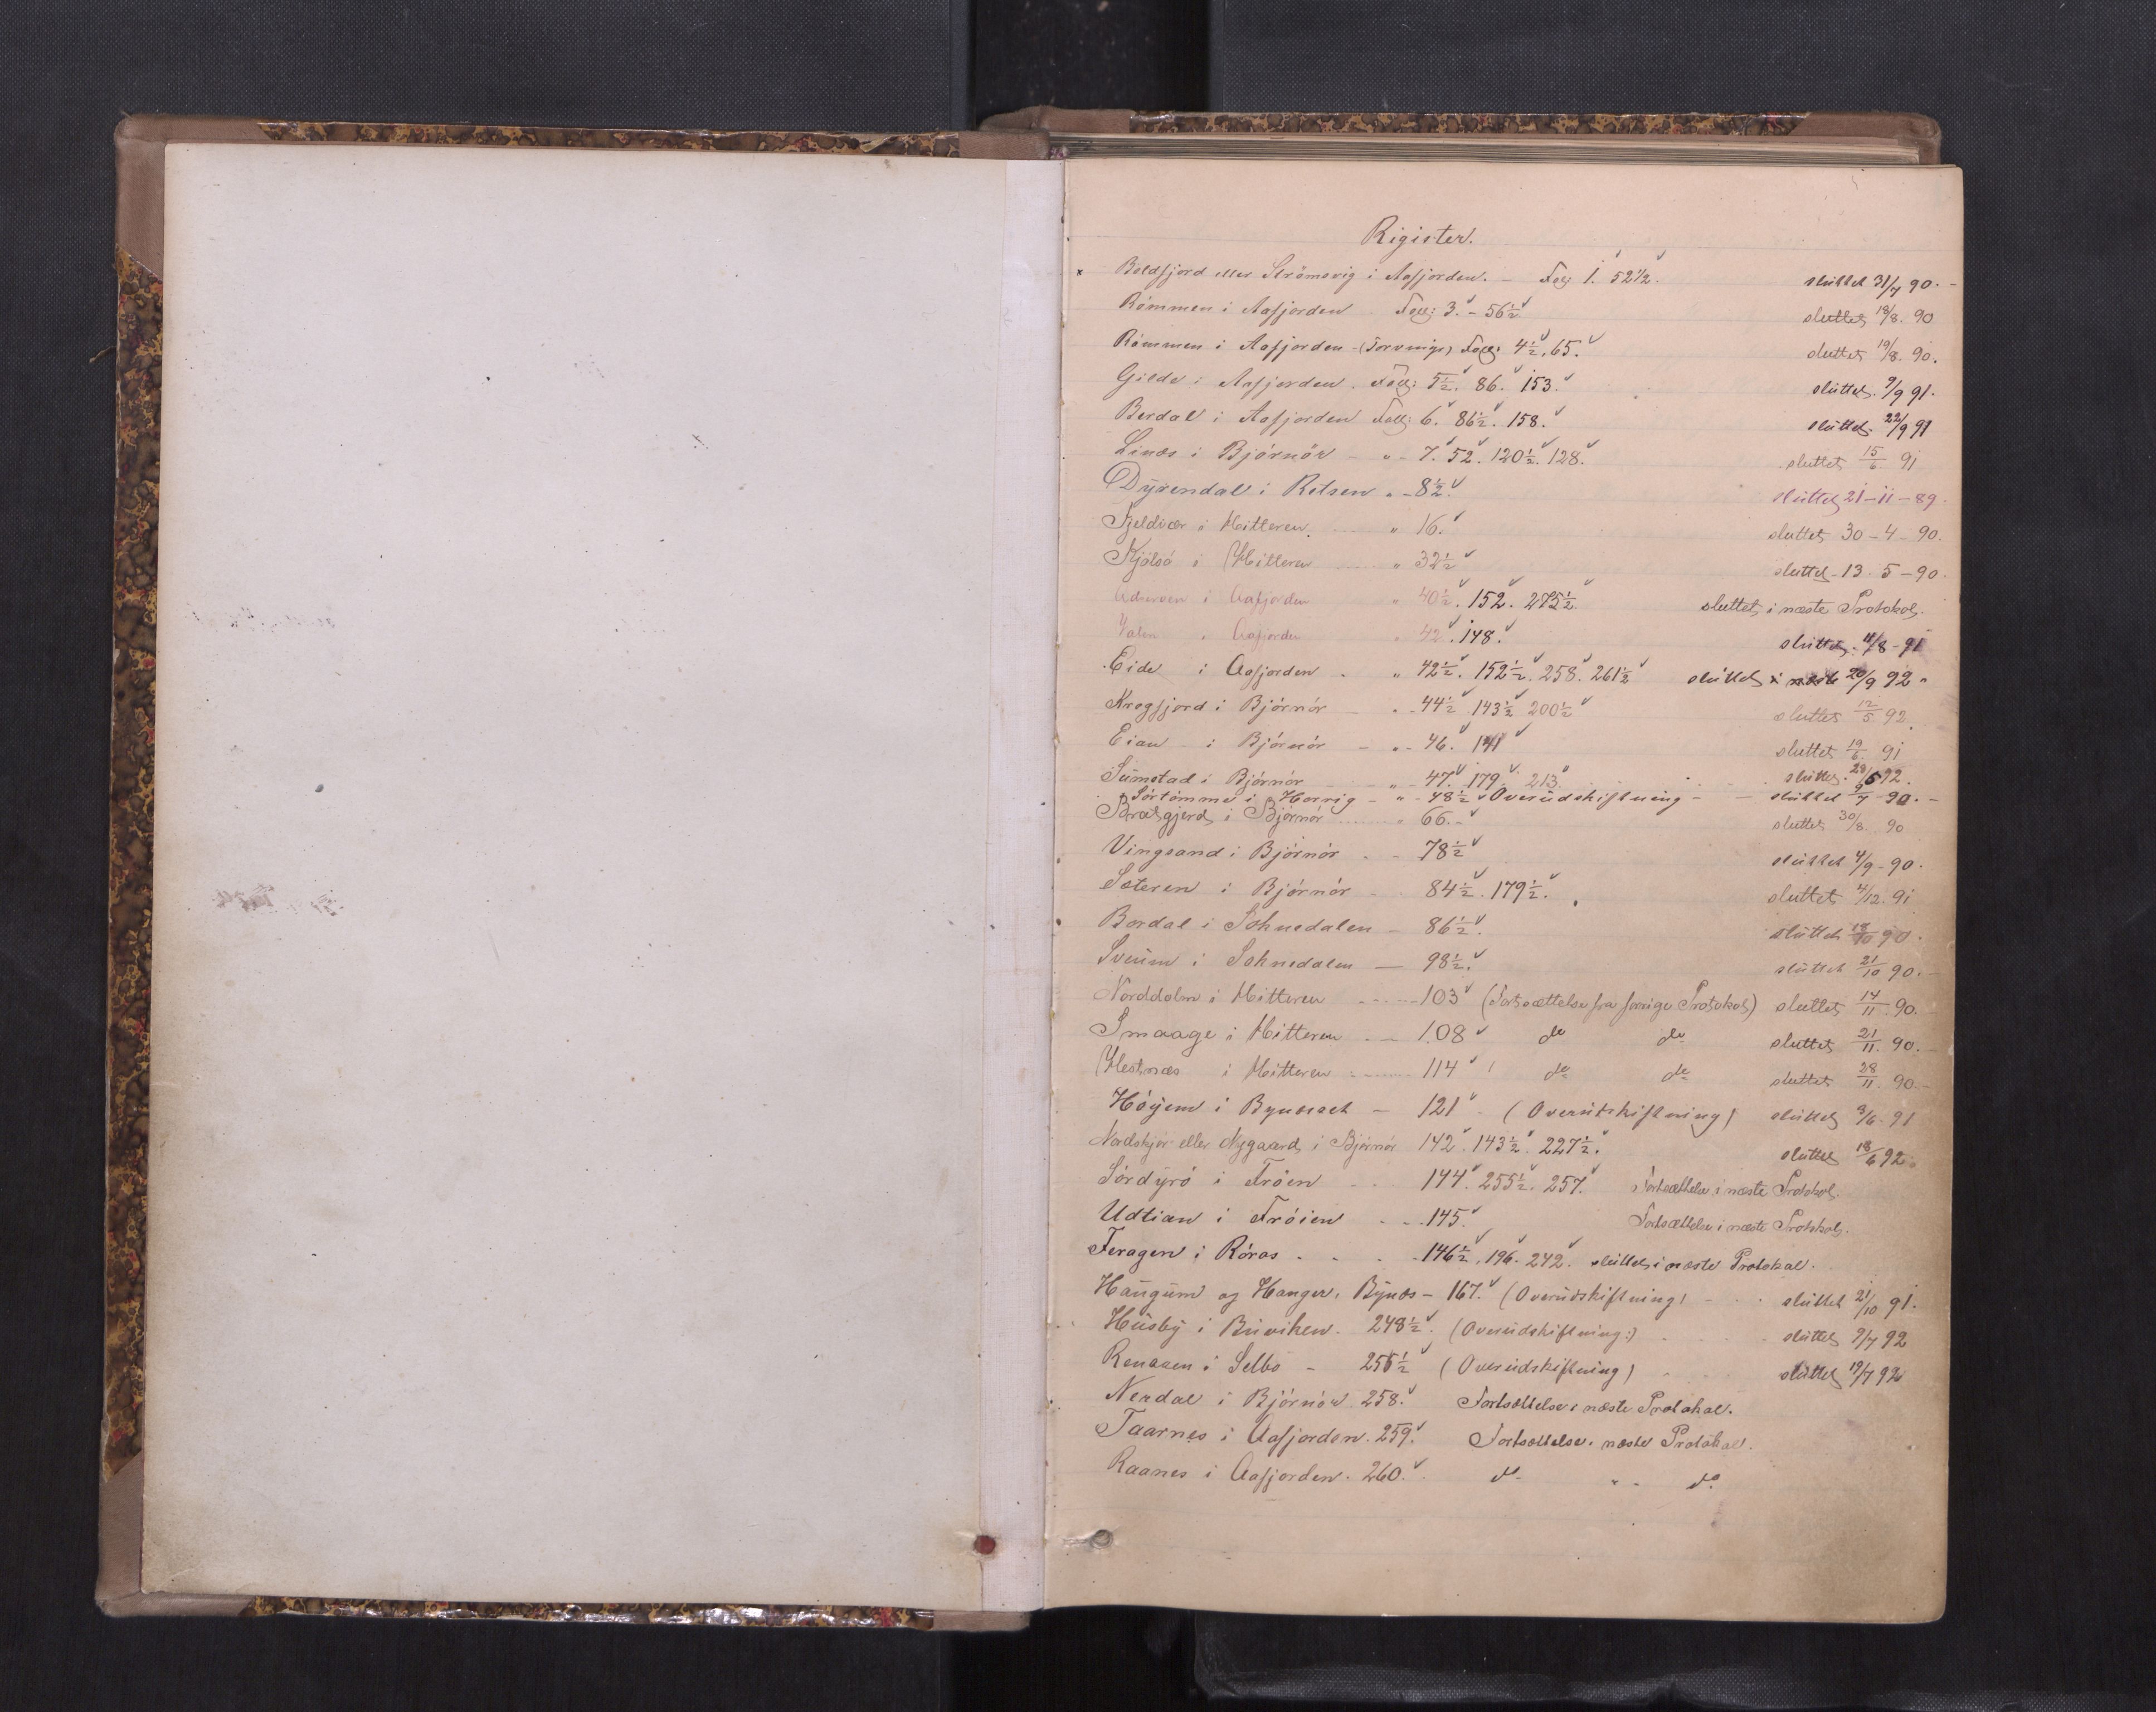 Rigister.
x Boldfjord eller Strömsvig i Aafjorden. - Fol: 1. 52 1/2. sluttet 31/7 90. -
Römmen i Aafjorden Foll: 3. - 56 1/2 sluttet 18/8. 90
Römmen i Aafjorden - (Torvmyr) Foll: 4 1/2, 65. sluttet 19/8. 90.
Gilde i Aafjorden. Foll: 5 1/2. 86. 153. sluttet. 9/9 91.
Berdal i Aafjorden Foll: 6. 86 1/2. 158. sluttet. 22/9 91
Linæs i Björnör - " - 7. 52. 120 1/2. 128. sluttet 15/6. 91
Dÿrendal i Ritsen " - 8 1/2. sluttet 21-11-89.
Fjeldvær i Hitteren. " 16. sluttet 30-4-90.
Kjölsö i Hitteren " 32 1/2 sluttet - 13. 5-90.
i Aafjorden " 40 1/2. 152. 275 1/2. sluttet i næste Protokol.
Valen i Aafjorden " 42. 148. sluttet. 11/8-91
Eide i Aafjorden. " 42 1/2. 152 1/2. 258. 261 1/2 sluttet i næste 20/9 92.
Kregfjord i Björnör - " - 44 1/2 143 1/2 200 1/2 sluttet 12/5. 92.
Eian i Björnör - " - 46. 141 sluttet 19/6. 91
Sümstad i Björnör " - 47. 179. 213. sluttet. 28/6 92.
Sörtömme i Horrig - " - 48 1/2 Overüdskiftning - sluttet 9/7 - 90. -
Bratgjerd i Björnör " 66. - sluttet 30/8. 90
Vingsand i Björnör - 78 1/2 sluttet 4/9-90.
Sæteren i Björnör - 84 1/2. 179 1/2. sluttet 4/12. 91
Bordal i Sohnedalen - 86 1/2. sluttet 18/10 90.
Sveüm i Sohnedalen - 98 1/2. sluttet 21/10 90. -
Norddolm i Hitteren - 103 (Fortsættelse fra forrige Protokol) sluttet 14/11. 90.
Smaage i Hitteren - 108 do do sluttet 21/11. 90.
Hestnæs i Hitteren 114 do do sluttet 28/11. 90. -
Höÿem i Bynesset - 121 - (Overüdskiftning) sluttet 3/6. 91
Nordskjör eller Nygaard i Björnör 142. 143 1/2. 227 1/2. sluttet 18/6 92.
Sördÿrö i Fröien - 144. 255 1/2. 257. Fortsættelse i næste Protokol.
Udtian i Fröien - 145. Fortsættelse i næste Protokol.
Feragen i Röros. - 146 1/2. 196. 242. sluttet i næste Protokol.
Haugüm og Hanger, Bÿnes - 167. (Overüdskiftning) - sluttet 21/10 91.
Hüsbÿ i Büviken. 248 1/2. (Overüdskiftning:) - sluttet 9/7 92
Renaaen i Selbo - 256 1/2 (Overüdskiftning) sluttet 19/7 92
Nerdal i Björnör 258. Fortsættelse i næste Protokol.
Taarnes i Aafjorden. 259. Fortsættelse i næste Protokol.
Raanes i Aafjorden. 260. do - " - do